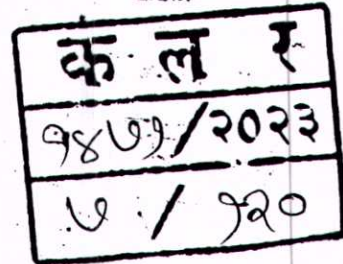 क ल र
१४७१/२०२३
७ / १२०